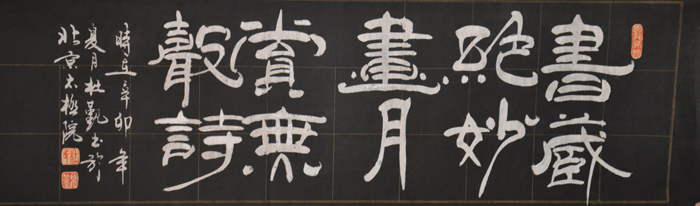 書藏
絕妙
畫月
賞無
聲詩
時在辛卯年
夏月杜勤书於
北京太極院